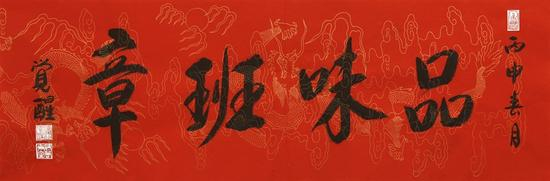 丙申春月
品味班章
覺醒